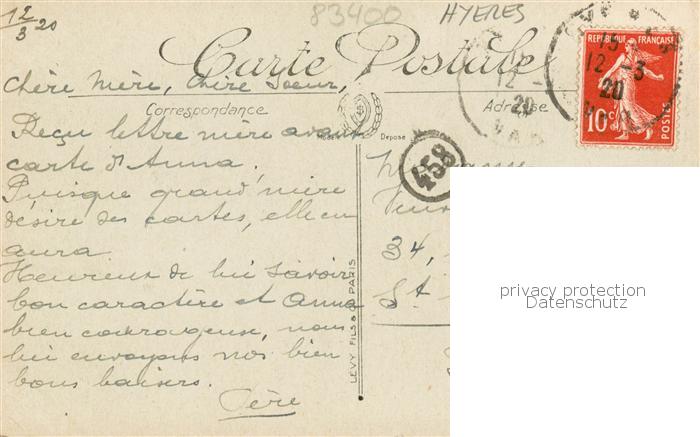 12/3 20
83400 HYERES
Carte Postale
Correspondance
Adresse
Chère Mère, Chère Soeur,
Reçu lettre mère avant
carte d'Anna.
Puisque grand'mère
désire des cartes, elle en
aura.
Heureux de lui savoir
bon caractère et Anna
bien courageuse, nous
lui envoyons nos bien
bons baisers.
Père
Déposé
LEVY FILS & Cie PARIS
458
34,
St
12
20
VAR
REPUBLIQUE FRANÇAISE
10c
POSTES
15
12 -3
20
privacy protection
Datenschutz